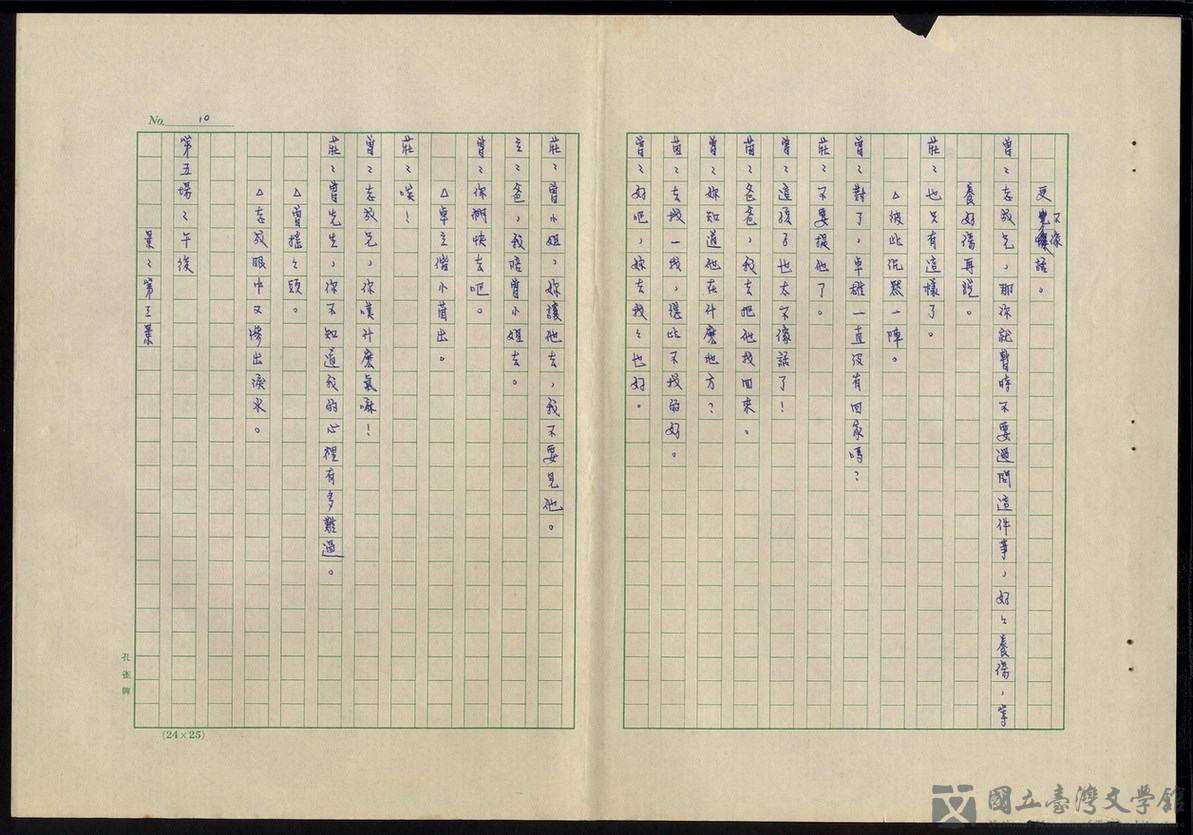 更不像話。
曾：志兄，那你就暫時不要過問這件事，好々養傷，等
養好傷再說。
莊：也只有這樣了。
△彼此沉默一陣。
曾：對了，卓雄一直沒有回家嗎？
莊：不要提他了。
曾：這孩子也太不像話了！
苗：爸爸，我去把他找回來。
曾：妳知道他在什麼地方？
苗：去找一找，總比不找的好。
曾：好吧，妳去找々也好。
莊：曾小姐，妳讓他去，我不要見他。
立：爸，我陪曾小姐去。
曾：你們快去吧。
△卓立偕小苗出。
莊：唉！
曾：志兄，你嘆什麼氣嘛！
莊：曾先生，你不知道我的心裡有多難過。
△曾搖々頭。
△志眼中又滲出淚水。
第五場：午後
景：第三景
No. 10
孔雀牌
(24×25)
國立臺灣文學館